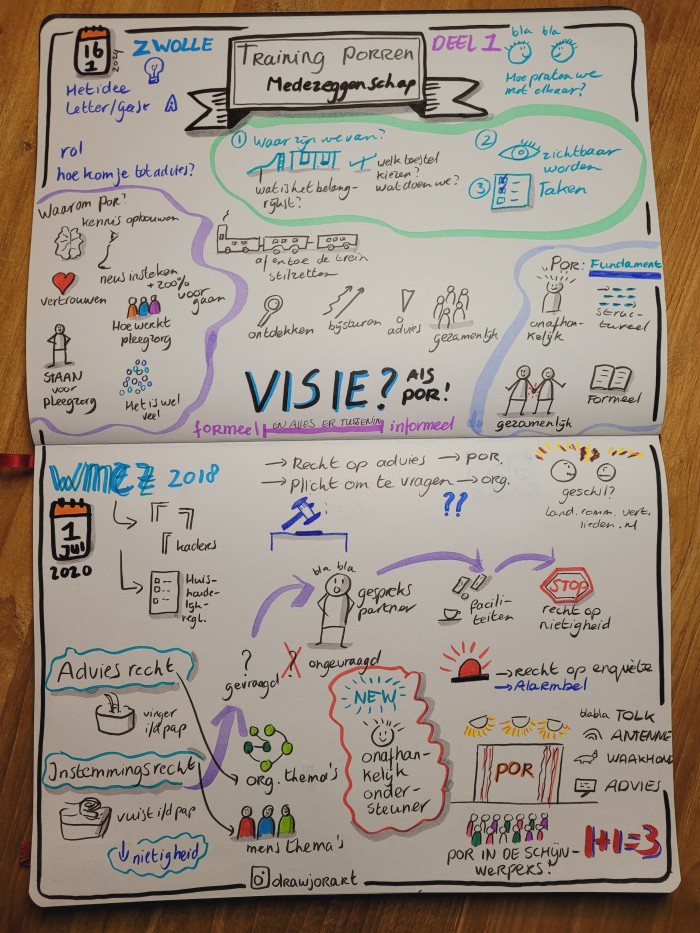 16
1
2021
ZWOLLE
Training PORREN
Medezeggenschap
DEEL 1
bla bla
Hoe praten we
met elkaar?
Het idee
Letter/geest A
rol
hoe kom je tot advies?
1 Waar zijn we van?
wat is het belang-
rijkst?
welk toestel
kiezen?
wat doen we?
2
zichtbaar
worden
3
Taken
Waarom POR?
kennis opbouwen
vertrouwen
nieuw insteken
+200%
voor
gaan
Hoe werkt
pleegzorg
STAAN
voor
pleegzorg
Het is wel
veel
af en toe de trein
stilzetten
ontdekken
bijsturen
advies
gezamenlijk
POR: Fundament
onafhan-
kelijk
struc-
tureel
gezamenlijk
Formeel
VISIE? Als
POR!
formeel EN ALLES ER TUSSENIN informeel
WMCZ 2018
1
JULI
2020
kaders
Huis-
houde-
lijk-
regl.
→ Recht op advies → POR.
→ Plicht om te vragen → org.
??
geschil?
land.comm.vert.
lieden.nl
bla bla
gespreks
partner
facili-
teiten
STOP
recht op
nietigheid
?
gevraagd
?
ongevraagd
→ recht op enquête
→ Alarmbel
Advies recht
vinger
i/d pap
Instemmingsrecht
vuist i/d pap
↓ nietigheid
org. thema's
mens thema's
NEW
onafhan-
kelijk
onder-
steuner
POR
blabla TOLK
ANTENNE
WAAKHOND
ADVIES
POR IN DE SCHIJN-
WERPERS!
1+1=3
drawjorart